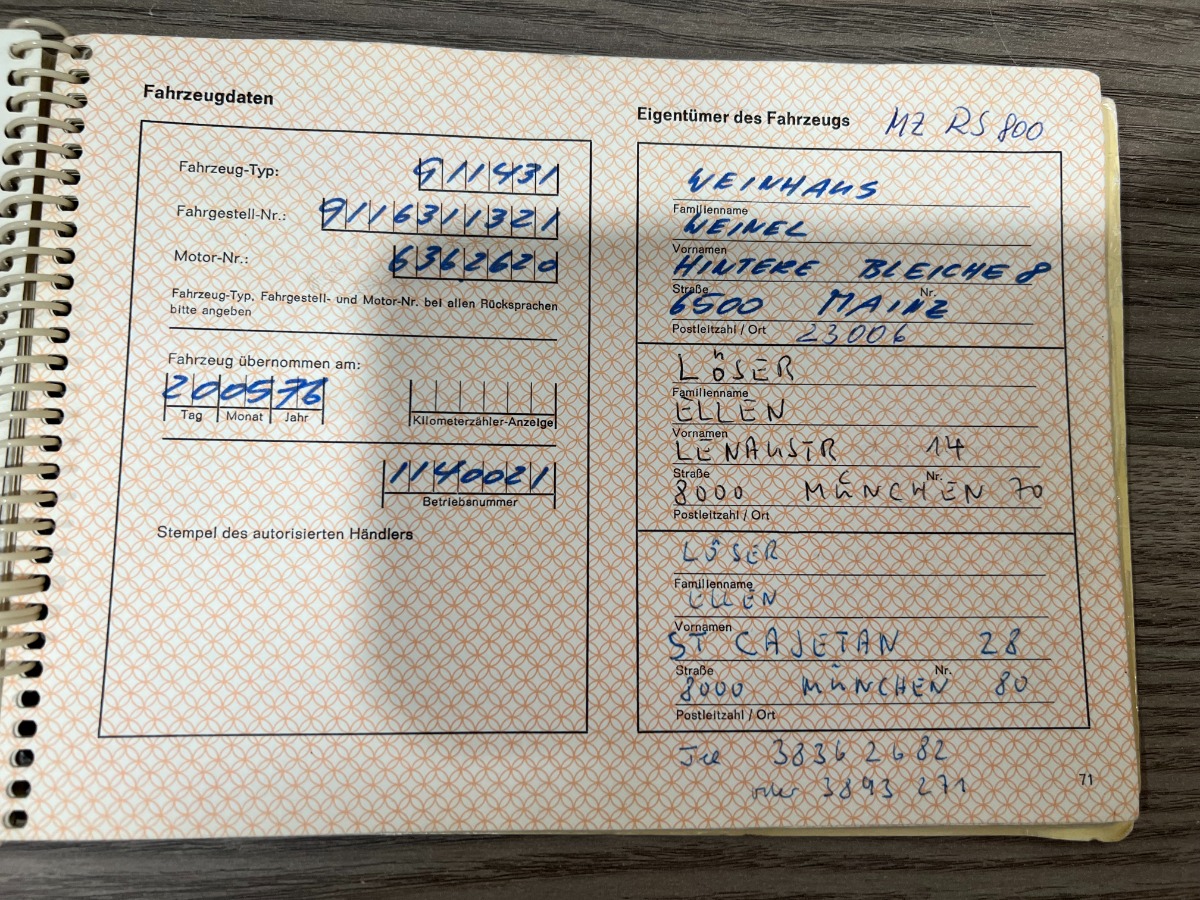 Fahrzeugdaten
Fahrzeug-Typ: 911431
Fahrgestell-Nr.: 9116311321
Motor-Nr.: 6362620
Fahrzeug-Typ, Fahrgestell- und Motor-Nr. bei allen Rücksprachen
bitte angeben
Fahrzeug übernommen am:
200576
Tag Monat Jahr
Kilometerzähler-Anzeige
1140021
Betriebsnummer
Stempel des autorisierten Händlers
Eigentümer des Fahrzeugs MZ RS 800
WEINHAUS
Familienname
WEINEL
Vornamen
HINTERE BLEICHE 8
Straße Nr.
6500 MAINZ
Postleitzahl / Ort 23006
LÖSER
Familienname
ELLEN
Vornamen
LENAUSTR 14
Straße Nr.
8000 MÜNCHEN 70
Postleitzahl / Ort
LÖSER
Familienname
ELLEN
Vornamen
ST CAJETAN 28
Straße Nr.
8000 MÜNCHEN 80
Postleitzahl / Ort
Tel 3836 2682
oder 3893 271
71